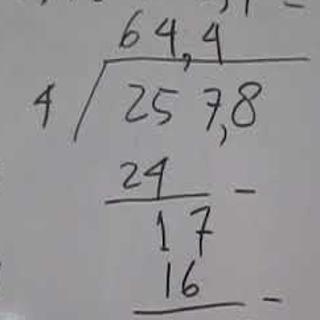 64,4
4 257,8
24 -
17
16
-